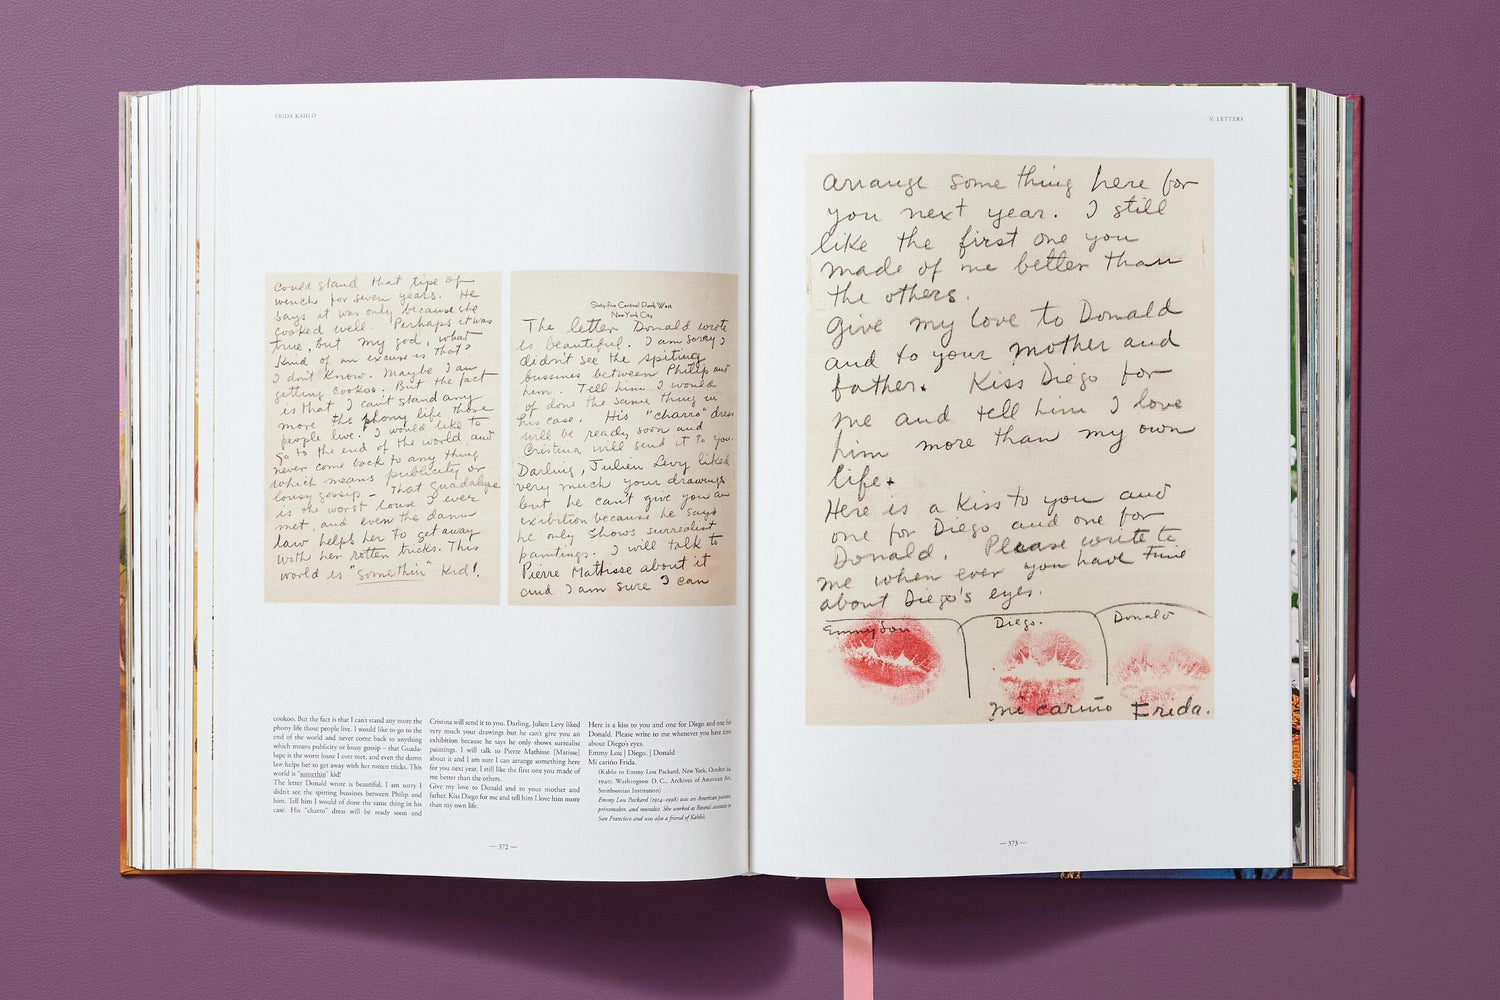 FRIDA KAHLO
could stand that tipe of
wench for seven years. He
says it was only because she
cooked well. Perhaps it was
true, but my god, what
kind of an excuse is that?
I don't know. Maybe I am
getting cookoo. But the fact
is that I can't stand any
more the phony life those
people live. I would like to
go to the end of the world and
never come back to any thing
which means publicity or
lousy gossip – That Guadalupe
is the worst louse I ever
met, and even the damn
law helps her to get away
with her rotten tricks. This
world is "somethin" kid!
Sixty-five Central Park West
New York City
The letter Donald wrote
is beautiful. I am sorry I
didn't see the spiting
bussines between Philip and
him. Tell him I would
of done the same thing in
his case. His "charro" dress
will be ready soon and
Cristina will send it to you.
Darling, Julien Levy liked
very much your drawings
but he can't give you an
exibition because he says
he only shows surrealist
paintings. I will talk to
Pierre Mathisse about it
and I am sure I can
cookoo. But the fact is that I can't stand any more the
phony life those people live. I would like to go to the
end of the world and never come back to anything
which means publicity or lousy gossip – that Guada-
lupe is the worst louse I ever met, and even the damn
law helps her to get away with her rotten tricks. This
world is "somethin" kid!
The letter Donald wrote is beautiful. I am sorry I
didn't see the spitting bussines between Philip and
him. Tell him I would of done the same thing in his
case. His "charro" dress will be ready soon and
Cristina will send it to you. Darling, Julien Levy liked
very much your drawings but he can't give you an
exhibition because he says he only shows surrealist
paintings. I will talk to Pierre Mathisse [Matisse]
about it and I am sure I can arrange something here
for you next year. I still like the first one you made of
me better than the others.
Give my love to Donald and to your mother and
father. Kiss Diego for me and tell him I love him more
than my own life.
Here is a kiss to you and one for Diego and one for
Donald. Please write to me whenever you have time
about Diego's eyes.
Emmy Lou | Diego. | Donald
Mi cariño Frida.
(Kahlo to Emmy Lou Packard, New York, October 24,
1940; Washington D. C., Archives of American Art,
Smithsonian Institution)
Emmy Lou Packard (1914–1998) was an American painter,
printmaker, and muralist. She worked as Rivera's assistant in
San Francisco and was also a friend of Kahlo's.
— 372 —
V. LETTERS
arrange some thing here for
you next year. I still
like the first one you
made of me better than
the others.
Give my love to Donald
and to your mother and
father. Kiss Diego for
me and tell him I love
him more than my own
life.
Here is a kiss to you and
one for Diego and one for
Donald. Please write to
me when ever you have time
about Diego's eyes.
Emmy Lou Diego. Donald
Mi cariño Frida.
— 373 —